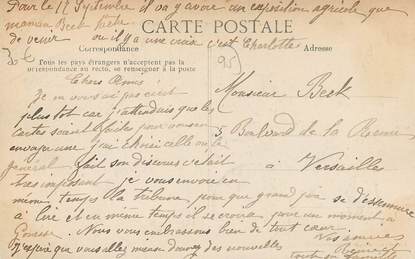 Pour le 12 Septembre il va y avoir un exposition agricole que
maman Beck tache
CARTE POSTALE
de venir ou il y a une croix c'est Charlotte
Correspondance
Adresse
3 €
95
Tous les pays étrangers n'acceptent pas la
correspondance au recto, se renseigner à la poste
Chers Amis
Je ne vous ai pas écrit
plus tot car j'attendais que les
cartes soient faites pour vous en
envoyer une j'ai choisi celle ou le
général fait son discours c'était
tres imposant je vous envoie en
meme temps la tribune pour que grand père se
à lire et en même temps il se croira pour un moment à
Gonesse. Nous vous embrassons bien de tout coeur.
J'espère que vous allez mieux donnez des nouvelles
Vos amis
Monsieur Beck
5 Boulevard de la Reine
à Versailles